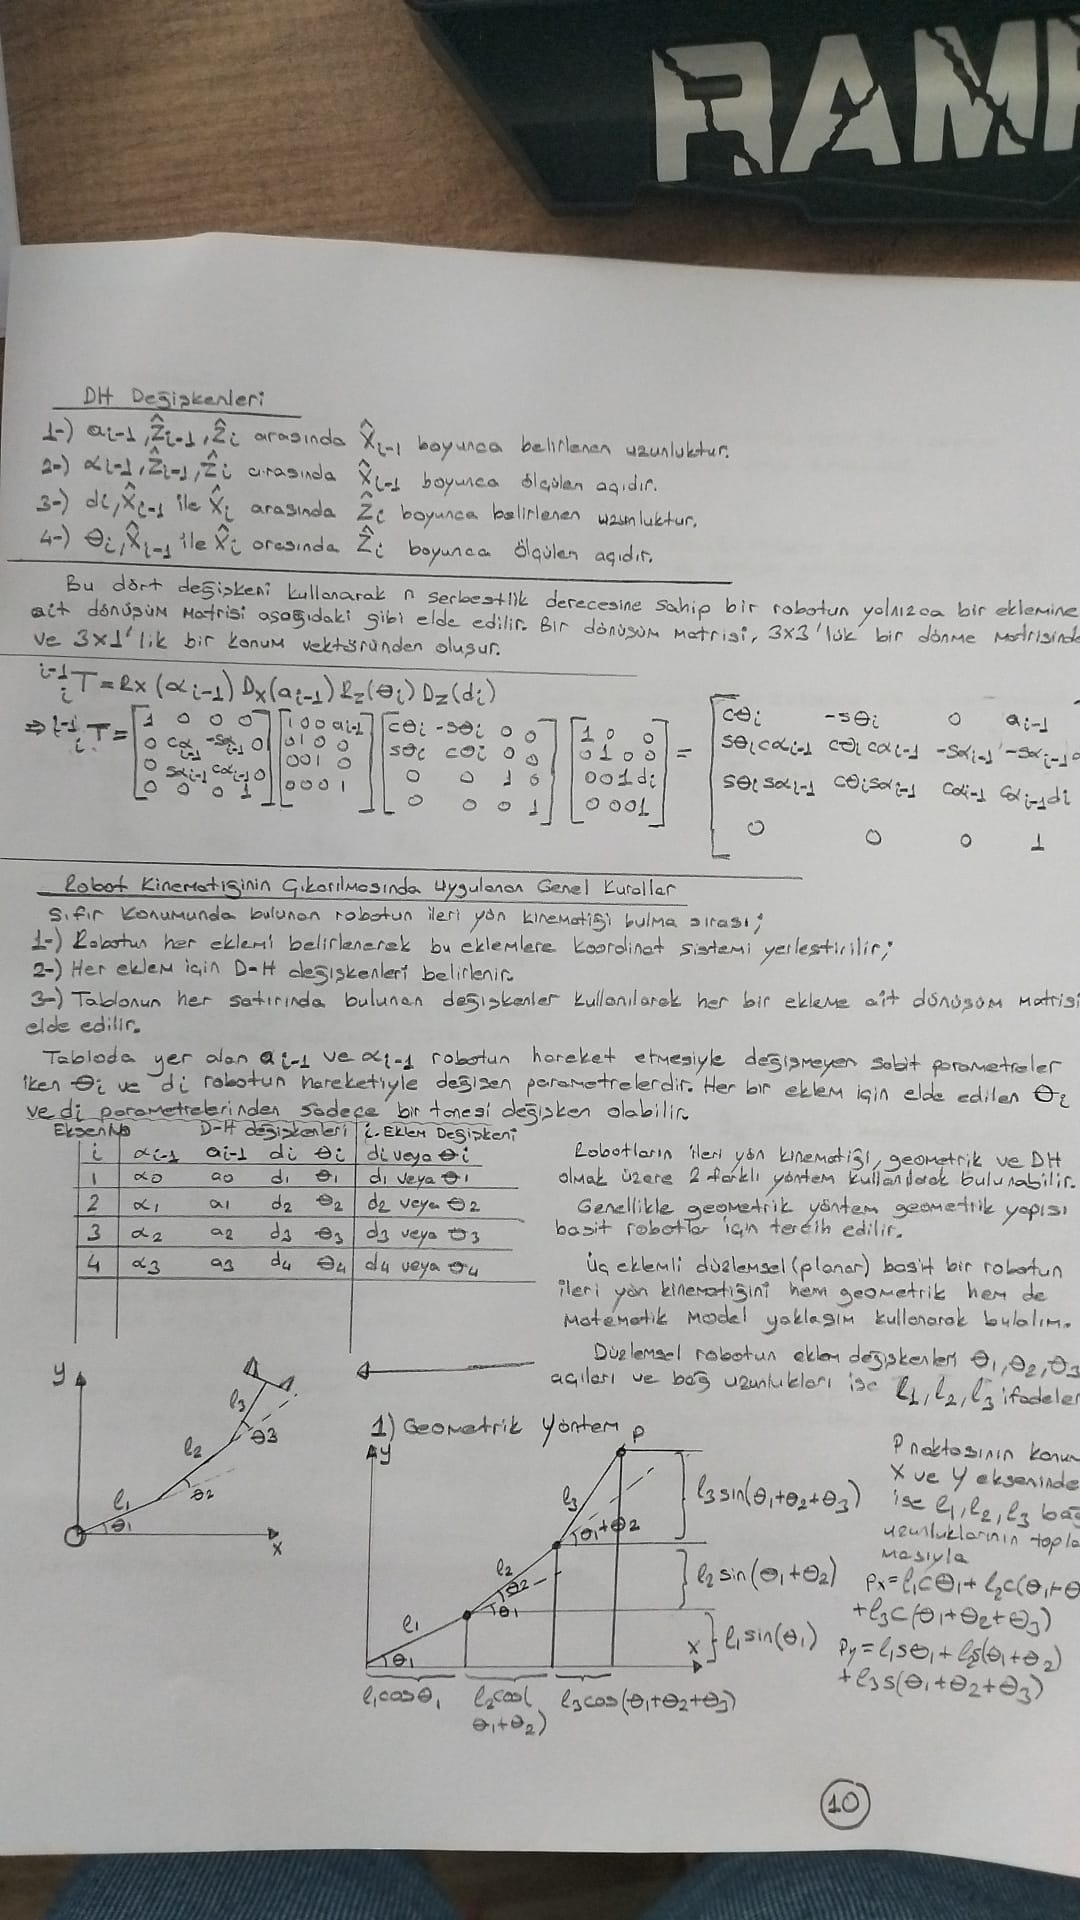 RAM
DH Değişkenleri
1-) aᵢ₋₁, Ẑᵢ₋₁, Ẑᵢ arasında X̂ᵢ₋₁ boyunca belirlenen uzunluktur.
2-) αᵢ₋₁, Ẑᵢ₋₁, Ẑᵢ arasında X̂ᵢ₋₁ boyunca ölçülen açıdır.
3-) dᵢ, X̂ᵢ₋₁ ile X̂ᵢ arasında Ẑᵢ boyunca belirlenen uzunluktur.
4-) θᵢ, X̂ᵢ₋₁ ile X̂ᵢ arasında Ẑᵢ boyunca ölçülen açıdır.
Bu dört değişkeni kullanarak n serbestlik derecesine sahip bir robotun yalnızca bir eklemine
ait dönüşüm matrisi aşağıdaki gibi elde edilir. Bir dönüşüm matrisi, 3x3'lük bir dönme matrisinde
ve 3x1'lik bir konum vektöründen oluşur.
ⁱ⁻¹ᵢT = Rx(αᵢ₋₁) Dx(aᵢ₋₁) Rz(θᵢ) Dz(dᵢ)
⇒ ⁱ⁻¹ᵢT = [1 0 0 0] [1 0 0 aᵢ₋₁] [cθᵢ -sθᵢ 0 0] [1 0 0] = [cθᵢ -sθᵢ 0 aᵢ₋₁
[0 cαᵢ₋₁ -sαᵢ₋₁ 0] [0 1 0 0] [sθᵢ cθᵢ 0 0] [0 1 0 0] sθᵢcαᵢ₋₁ cθᵢcαᵢ₋₁ -sαᵢ₋₁ -sαᵢ₋₁
[0 sαᵢ₋₁ cαᵢ₋₁ 0] [0 0 1 0] [0 0 1 0] [0 0 1 dᵢ] sθᵢsαᵢ₋₁ cθᵢsαᵢ₋₁ cαᵢ₋₁ cαᵢ₋₁dᵢ
[0 0 0 1] [0 0 0 1] [0 0 0 1] [0 0 0 1] 0 0 0 1
Robot Kinematiğinin Çıkarılmasında Uygulanan Genel Kurallar
Sıfır konumunda bulunan robotun ileri yön kinematiği bulma sırası;
1-) Robotun her eklemi belirlenerek bu eklemlere koordinat sistemi yerleştirilir;
2-) Her eklem için D-H değişkenleri belirlenir.
3-) Tablonun her satırında bulunan değişkenler kullanılarak her bir ekleme ait dönüşüm matrisi
elde edilir.
Tabloda yer alan aᵢ₋₁ ve αᵢ₋₁ robotun hareket etmesiyle değişmeyen sabit parametreler
iken θᵢ ve dᵢ robotun hareketiyle değişen parametrelerdir. Her bir eklem için elde edilen θᵢ
ve dᵢ parametrelerinden sadece bir tanesi değişken olabilir.
Eksen No D-H değişkenleri i. Eklem Değişkeni
i αᵢ₋₁ aᵢ₋₁ dᵢ θᵢ dᵢ veya θᵢ
1 α₀ a₀ d₁ θ₁ d₁ veya θ₁
2 α₁ a₁ d₂ θ₂ d₂ veya θ₂
3 α₂ a₂ d₃ θ₃ d₃ veya θ₃
4 α₃ a₃ d₄ θ₄ d₄ veya θ₄
Robotların ileri yön kinematiği, geometrik ve DH
olmak üzere 2 farklı yöntem kullanılarak bulunabilir.
Genellikle geometrik yöntem geometrik yapısı
basit robotlar için tercih edilir.
Üç eklemli düzlemsel (planar) basit bir robotun
ileri yön kinematiğini hem geometrik hem de
matematik model yaklaşım kullanarak bulalım.
Düzlemsel robotun eklem değişkenleri θ₁, θ₂, θ₃
açıları ve bağ uzunlukları ise l₁, l₂, l₃ ifadeler
y
l₃
θ₃
l₂
θ₂
l₁
θ₁
x
1) Geometrik Yöntem
y
P
l₃
θ₁+θ₂
l₃sin(θ₁+θ₂+θ₃)
l₂
θ₂
θ₁
l₂sin(θ₁+θ₂)
l₁
θ₁
x
l₁sin(θ₁)
l₁cosθ₁
l₂cos(
θ₁+θ₂)
l₃cos(θ₁+θ₂+θ₃)
P noktasının konum
X ve Y ekseninde
ise l₁, l₂, l₃ bağ
uzunluklarının topla
masıyla
Px=l₁cθ₁+l₂c(θ₁+θ
+l₃c(θ₁+θ₂+θ₃)
Py=l₁sθ₁+l₂s(θ₁+θ₂)
+l₃s(θ₁+θ₂+θ₃)
10